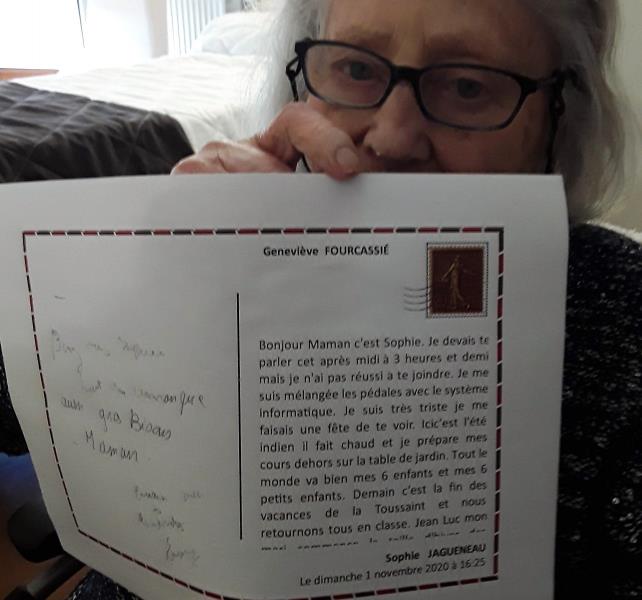 Geneviève FOURCASSIÉ
Bonjour Maman c'est Sophie. Je devais te
parler cet après midi à 3 heures et demi
mais je n'ai pas réussi a te joindre. Je me
suis mélangée les pédales avec le système
informatique. Je suis très triste je me
faisais une fête de te voir. Icic'est l'été
indien il fait chaud et je prépare mes
cours dehors sur la table de jardin. Tout le
monde va bien mes 6 enfants et mes 6
petits enfants. Demain c'est la fin des
vacances de la Toussaint et nous
retournons tous en classe. Jean Luc mon
Sophie JAGUENEAU
Le dimanche 1 novembre 2020 à 16:25
manque
aussi gros Bisous
Maman